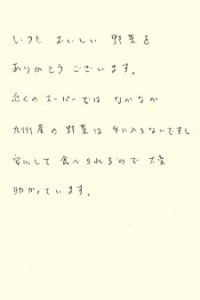 いつも おいしい 野菜を
ありがとう ございます。
近くのスーパーでは なかなか
九州産の野菜は 手に入らないですし
安心して 食べられるので 大変
助かっています。